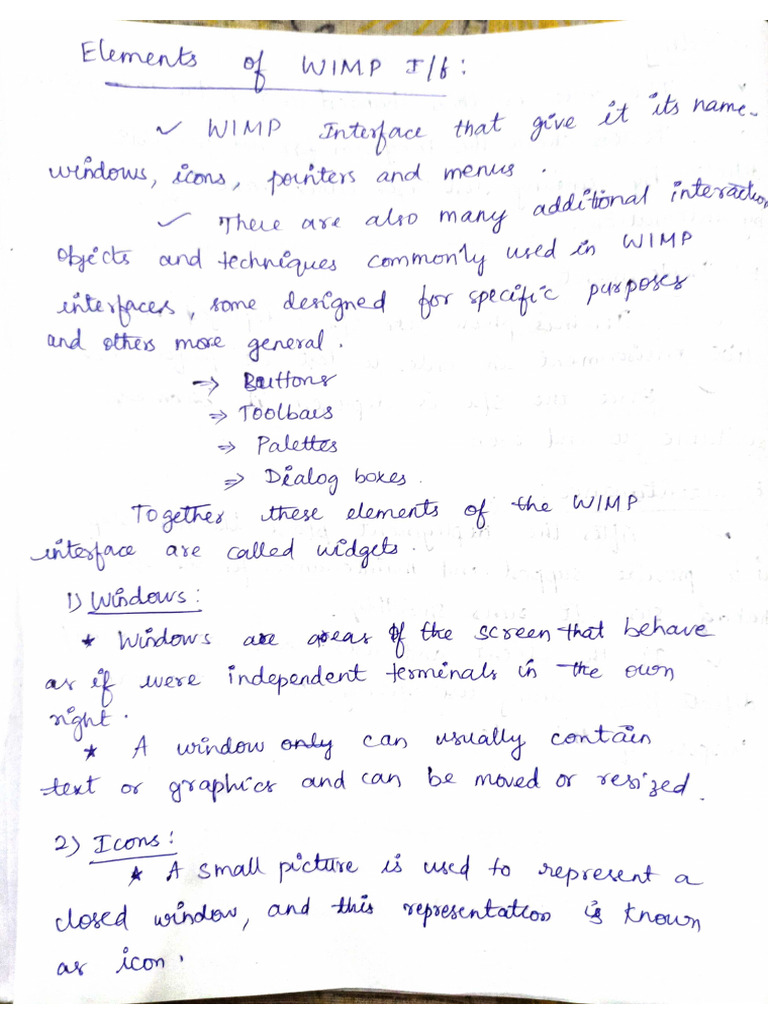 Elements of WIMP I/f :
✓ WIMP Interface that give it its name-
windows, icons, pointers and menus .
✓ There are also many additional interaction
objects and techniques commonly used in WIMP
interfaces, some designed for specific purposes
and others more general .
→ Buttons
⇒ Toolbars
⇒ Palettes
⇒ Dialog boxes .
Together these elements of the WIMP
interface are called widgets .
1) Windows :
* Windows are areas of the screen that behave
as if were independent terminals in the own
right .
* A window only can usually contain
text or graphics and can be moved or resized .
2) Icons :
* A small picture is used to represent a
closed window, and this representation is known
as icon .